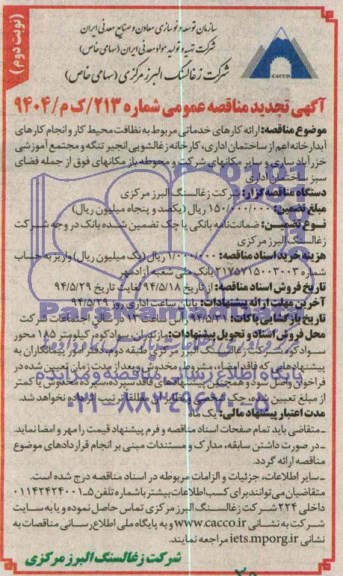 (نوبت دوم)
سازمان توسعه و نوسازی معادن و صنایع معدنی ایران
شرکت تهیه و تولید مواد معدنی ایران (سهامی خاص)
شرکت زغالسنگ البرز مرکزی (سهامی خاص)
CACCO
آگهی تجدید مناقصه عمومی شماره ۲۱۳/ک م/۹۴۰۴
موضوع مناقصه: ارائه کارهای خدماتی مربوط به نظافت محیط کار و انجام کارهای
آبدارخانه اعم از ساختمان اداری، کارخانه زغالشویی انجیر تنگه و مجتمع آموزشی
خزر آباد ساری و سایر مکانهای شرکت و محوطه باز مکانهای فوق از جمله فضای
سبز ساختمان اداری
دستگاه مناقصه گزار: شرکت زغالسنگ البرز مرکزی
مبلغ تضمین: ۱۵۰/۰۰۰/۰۰۰ ریال (یکصد و پنجاه میلیون ریال)
نوع تضمین: ضمانت‌نامه بانکی یا چک تضمین شده بانک در وجه شرکت
زغالسنگ البرز مرکزی
هزینه خرید اسناد مناقصه: ۱/۰۰۰/۰۰۰ ریال (یک میلیون ریال) واریز به حساب
شماره ۲۱۷۵۷۱۵۰۰۳۰۰۳ بانک ملی شعبه آزادمهر
تاریخ فروش اسناد مناقصه: از تاریخ ۹۴/۵/۱۸ لغایت تاریخ ۹۴/۵/۲۹
آخرین مهلت ارائه پیشنهادات: پایان ساعت اداری روز ۹۴/۵/۲۹
تاریخ بازگشایی پاکات:
محل فروش اسناد و تحویل پیشنهادات: مازندران، سوادکوه، کیلومتر ۱۸۵ محور
سوادکوه، شرکت زغالسنگ البرز مرکزی طبقه دوم، دفتر امور پیمانکاران به
پیشنهادهایی که فاقد امضاء، مشروط، مخدوش و بعد از مدت زمان تعیین شده در
فراخوان واصل شود و همچنین پیشنهادهای فاقد سپرده، سپرده مخدوش یا کمتر
از مبلغ تعیین شده، چک شخصی و نظایر آن مطلقا ترتیب اثر داده نخواهد شد.
مدت اعتبار پیشنهاد مالی: یک ماه
ـ متقاضی باید تمام صفحات اسناد مناقصه و فرم پیشنهاد قیمت را مهر و امضا نماید.
ـ در صورت داشتن سابقه، مدارک و مستندات مبنی بر انجام قراردادهای موضوع
مناقصه ارائه گردد.
ـ سایر اطلاعات، جزئیات و الزامات مربوطه در اسناد مناقصه درج شده است.
متقاضیان می‌توانند برای کسب اطلاعات بیشتر با شماره تلفن ۵ـ۰۱۱۴۲۴۲۴۰۰۱
داخلی ۲۲۴ شرکت زغالسنگ البرز مرکزی تماس حاصل نموده و یا به سایت
شرکت به نشانی www.cacco.ir و به پایگاه ملی اطلاع رسانی مناقصات به
نشانی iets.mporg.ir مراجعه نمایند.
شرکت زغالسنگ البرز مرکزی
پایگاه اطلاع رسانی مناقصه و مزایده
۰۲۱-۸۸۳۴۹۶۷۰-۵